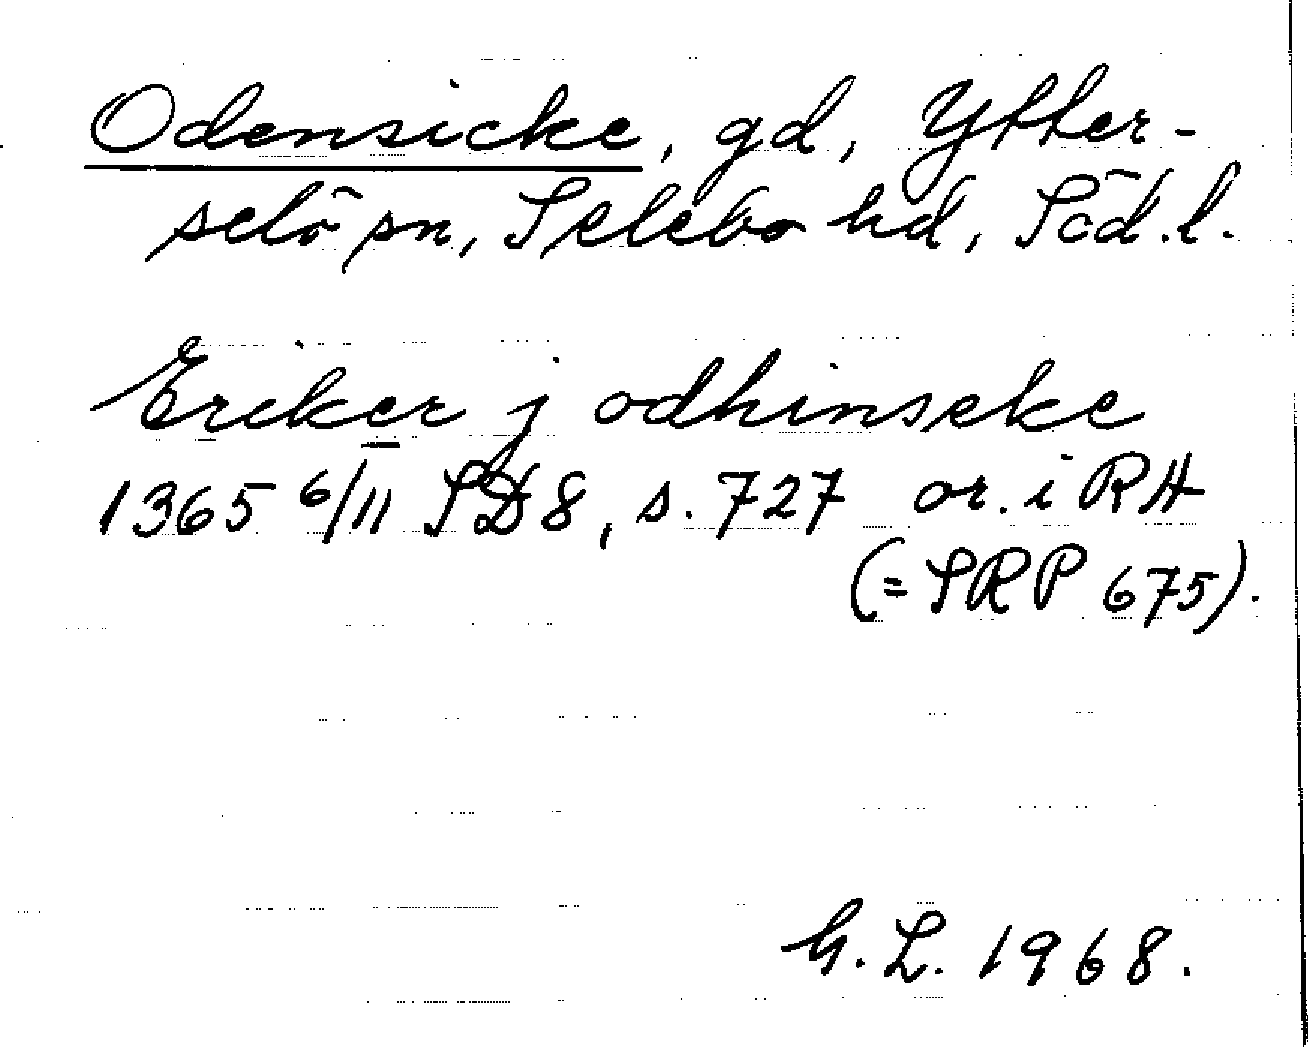 Odensicke, gd, Ytter-
selö sn, Selebo hd, Söd.l.
Eriker j odhinseke
1365 6/11 SD8, s. 727 or. i RA
(= SRP 675).
G. L. 1968.